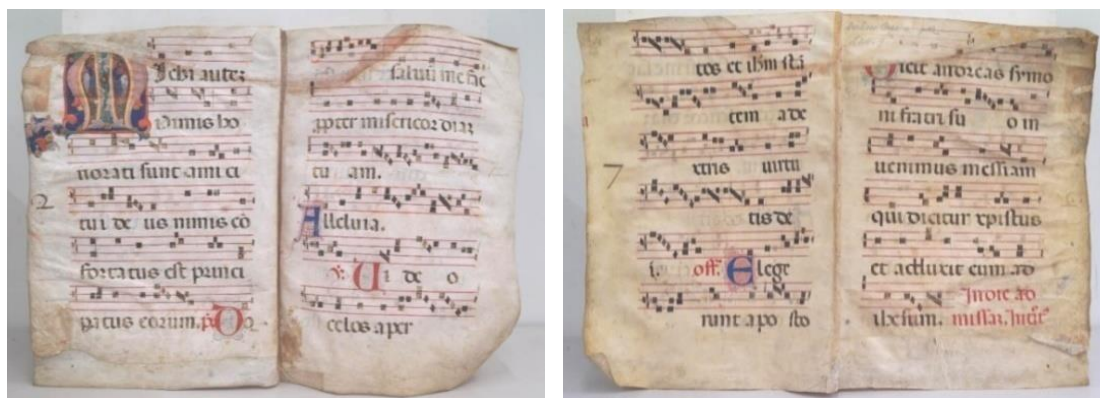 Ichi autez
nimis ho
norati sunt ami ci
tui de us nimis cō
fortatus est princi
patus eorum. p̄s D
salvū me fac
ppter misericordiaz
tu am.
Alleluia.
℣. Ui de o
celos aper
tos et ihm stā
tem a de
xtris virtu
tis de
i. off. Elege
runt apo sto
Dicit andreas symo
ni fratri su o in
venimus messiam
qui dicitur xpistus
et adduxit eum ad
ihesum. missaz. Introit
2
7